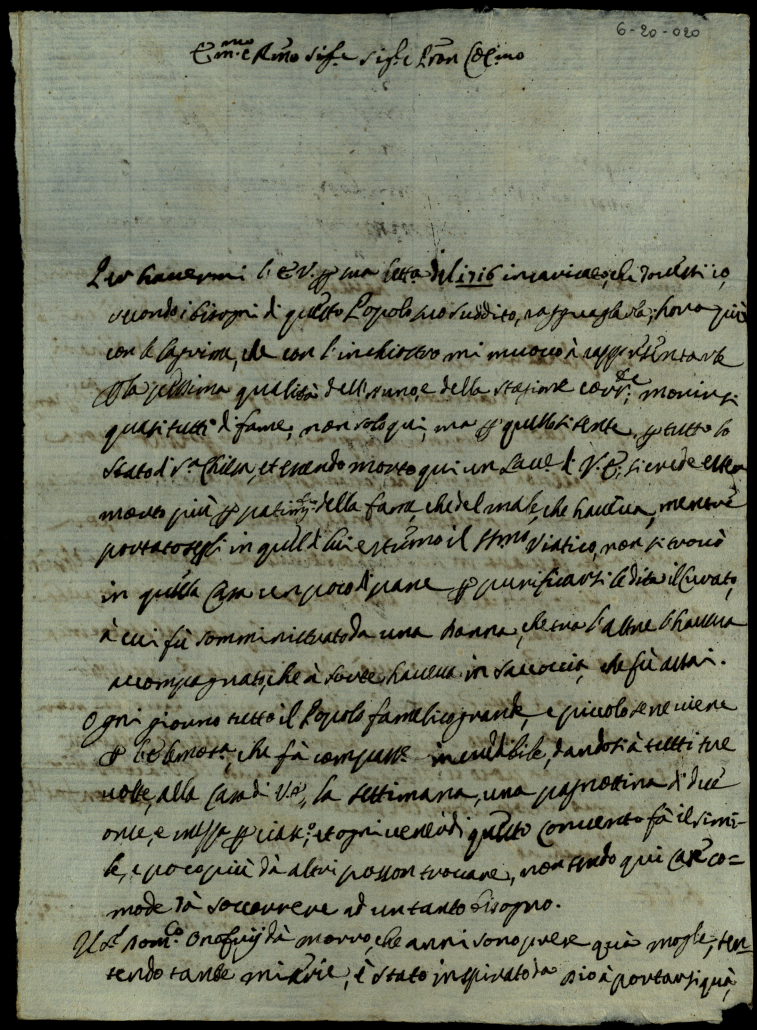 6-20-020
Em.mo e R.mo Sig.re Sig.re Pron Col.mo
Per havermi l'E.V. p sua lett.a del 1716 incaricato, che dovessi io,
secondo i bisogni di questo Popolo suo suddito, ragguagliarla; hora più
con le lagrime, che con l'inchiostro mi muovo à rappresentarle
p la pessima qualità dell'anno, e della stagione corr.te, morirsi
quasi tutti di fame, non solo qui, ma p quello si sente p tutto lo
Stato di S.ta Chiesa, et essendo morto qui un di V.E., si crede esser
morto più p patim.ti della fame, che del male, che haveva, mentre
portatosegli in quell'di lui estremo il SS.mo Viatico, non si trovò
in quella Casa un poco di pane p purificarsi le dita il Curato,
à cui fù somministrato da una donna, che tra l'altre l'haveva
accompagnato, che à sorte haveva in saccoccia, che fù assai.
Ogni giorno tutto il Popolo famelico grande, e piccolo se ne viene
p l'elemos.a, che fà compass.e incredibile, dandosi à tutti tre
volte, alla Casa di V.E., la settimana, una pagnottina di due
oncie, e mezza p ciasc.o, et ogni venerdì questo Convento fà il simi-
le, e poco più dà altri posson trovare, non sendo qui Case co=
mode dà soccorrere ad un tanto bisogno.
Il S.r Dom.co Onofrij dà Morro, che anni sono prese quà moglie, sen-
tendo tante miserie, è stato inspirato da Dio à portarsi quà,